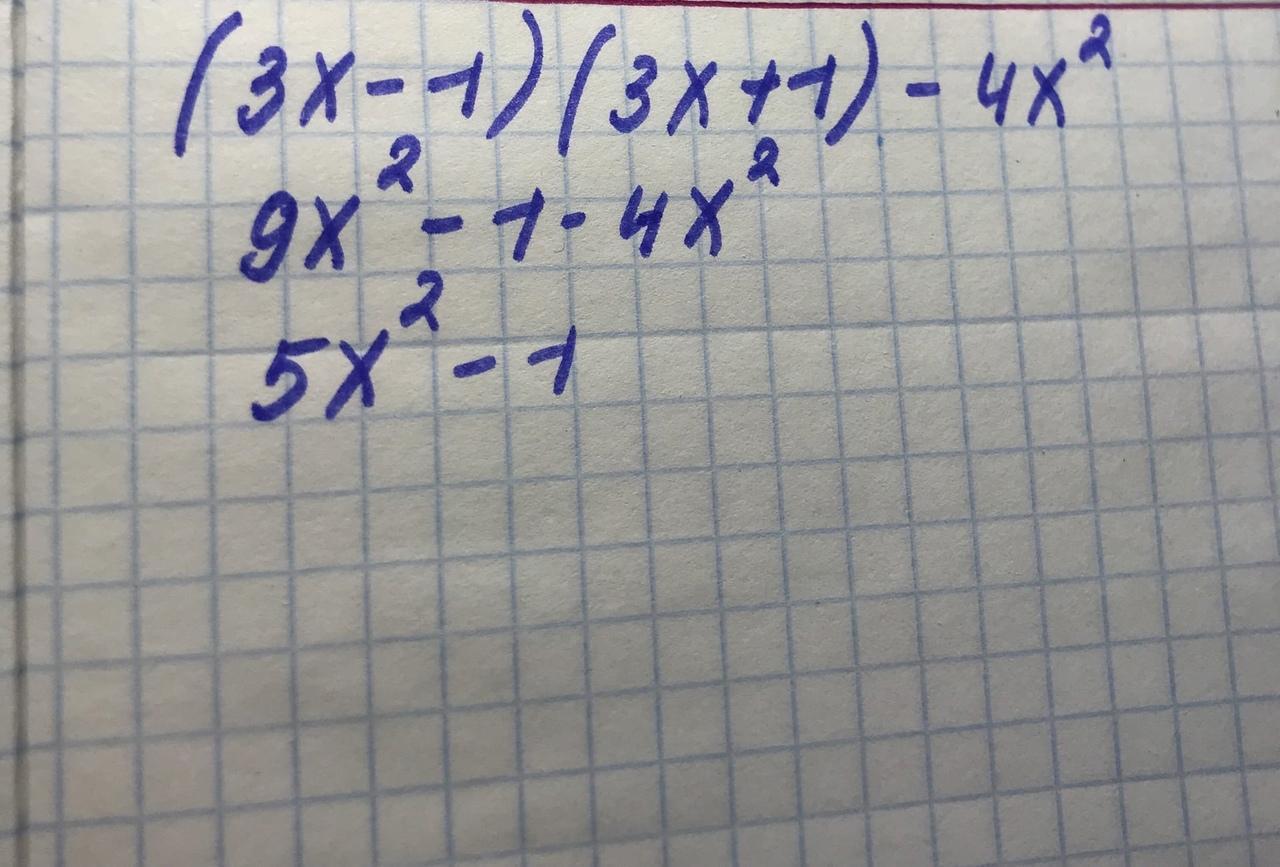 (3x-1)(3x+1)-4x²
9x²-1-4x²
5x²-1